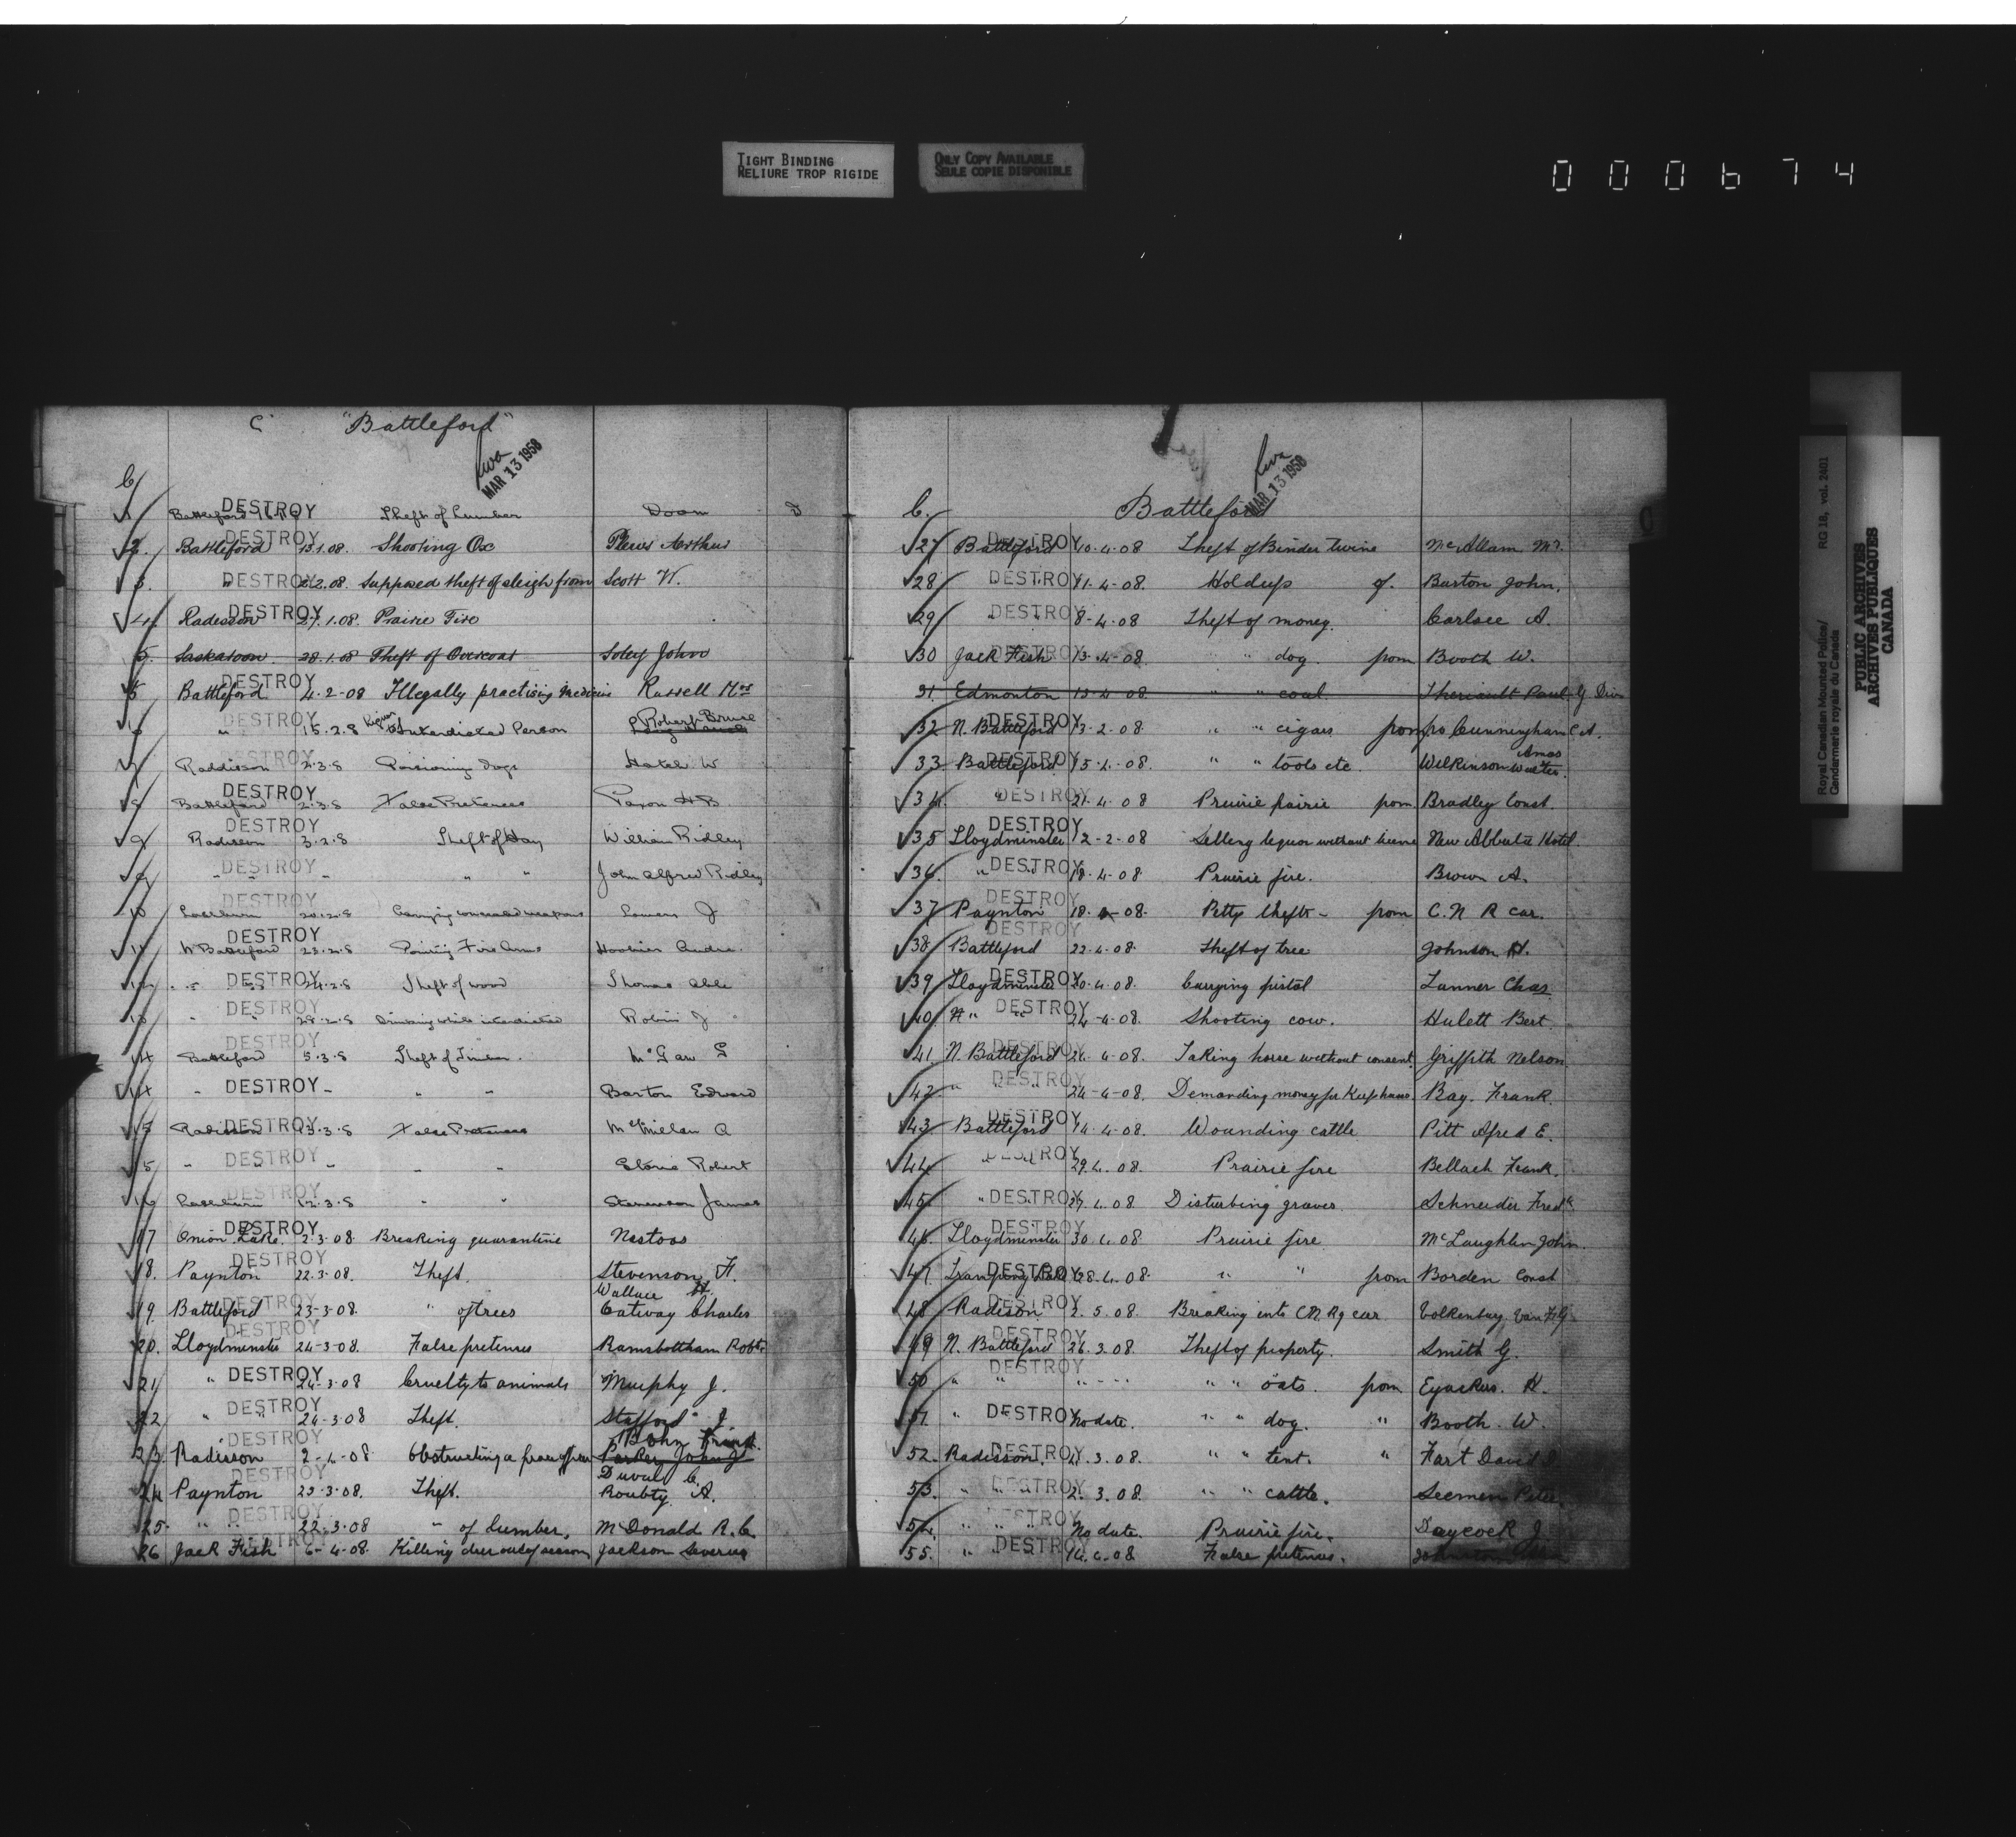 TIGHT BINDING
RELIURE TROP RIGIDE
ONLY COPY AVAILABLE
SEULE COPIE DISPONIBLE
000674
Royal Canadian Mounted Police/
Gendarmerie royale du Canada
RG 18, vol. 2401
PUBLIC ARCHIVES
ARCHIVES PUBLIQUES
CANADA
C "Battleford"
MAR 13 1958
C
1 DESTROY Theft of Lumber Doom
2. Battleford DESTROY 13.1.08. Shooting Ox Plews Arthur
3. " DESTROY 2.08. Supposed theft of sleigh from Scott W.
4. Radisson DESTROY 27.1.08. Prairie Fire
5. Saskatoon 28.1.08 Theft of Overcoat Soley John
5 Battleford DESTROY 4-2-08 Illegally practising medicine Russell Mrs
6 " DESTROY 15.2.8 Liquor to Interdicted Person Robert Bruce
7 Raddisson DESTROY 2.3.8 Poisoning dogs Hatch W
8 Battleford DESTROY 2.3.8 False Pretences Paxon H B
9 Radisson DESTROY 3.2.8 Theft of Hay William Ridley
9 " " DESTROY " " " John Alfred Ridley
10 Lashburn 20.2.8 Carrying concealed weapons J
11 N Battleford DESTROY 23.2.8 Fire Arms
12 " " DESTROY 24.2.8 Theft of wood Thomas
13 " " DESTROY 28.2.8 Drinking while interdicted Robin J
14 Battleford DESTROY 5.3.8 Theft of Timber. McGaw G
14 " DESTROY " " " Barton Edward
15 Radisson DESTROY 3.8 False Pretences McMillan A
15 " DESTROY " " " Robert
16 Lashburn DESTROY 12.3.8 " " Stevenson James
17 Onion Lake. DESTROY 2.3.08. Breaking quarantine Nastoos
18. Paynton DESTROY 22.3.08. Theft. Stevenson F.
Wallace H.
19. Battleford DESTROY 23-3-08. " of trees Catway Charles
20. Lloydminster DESTROY 24-3-08. False pretences Ramsbottham Robt.
21 " DESTROY 24-3-08 Cruelty to animals Murphy J.
22 " DESTROY 24-3-08 Theft. Stafford J.
Bohn Frank.
23. Radisson DESTROY 2-4-08 Obstructing a peace officer Parker John J
Duval C.
24 Paynton DESTROY 23-3-08. Theft. Roubty A.
25. " " DESTROY 22-3-08 " of lumber, McDonald R. C.
26 Jack Fish DESTROY 6-4-08. Killing deer out of season Jackson Severus
MAR 13 1958
C. Battleford
27 Battleford DESTROY 10.4.08 Theft of Binder twine McAllam Mr.
28 DESTROY 11-4-08. Holdup of. Burton John.
29 " DESTROY 8-4-08 Theft of money. Carlsee A.
30 Jack Fish DESTROY 13-4-08. " " dog. from Booth W.
31 Edmonton 13-4-08. " " coal. Theriault Paul G Div
32 N. Battleford DESTROY 13-2-08. " " cigars from Cunningham C A.
33 Battleford DESTROY 15-4-08. " " tools etc. Wilkinson Amos Walter.
34. " DESTROY 21.4.08 Prairie fairie from Bradley Const.
35 Lloydminster DESTROY 12-2-08 Selling liquor without license New Alberta Hotel.
36. " DESTROY 18-4-08 Prairie fire. Brown A.
37 Paynton DESTROY 18.4-08. Petty thefts - from C. N R car.
38 Battleford DESTROY 22-4-08. Theft of tree Johnson H.
39 Lloydminster DESTROY 20.4.08. Carrying pistol Tanner Chas.
40. N. " DESTROY 24-4-08. Shooting cow. Hulett Bert.
41 N. Battleford DESTROY 26.4-08. Taking horse without consent. Griffith Nelson
42 " " DESTROY 24-4-08. Demanding money for Keep horse. Bay. Frank.
43 Battleford DESTROY 14.4-08. Wounding cattle Pitt Afred E.
44 " DESTROY 29.4.08. Prairie fire Bellach Frank.
45. " DESTROY 27.4.08 Disturbing graves. Schneider Fredk
46. Lloydminster DESTROY 30.4.08 Prairie fire McLaughlin John.
47. DESTROY 28.4.08. " " from Borden Const
48 Radisson DESTROY 2.5.08. Breaking into C.N.Ry car. Volkenburg Van F.G.
49 N. Battleford DESTROY 26.3.08. Theft of property. Smith G.
50 " " DESTROY " " oats. from H.
51. " " DESTROY No date. " " dog. " Booth W.
52. Radisson. DESTROY 3.08. " " tent. " Fart David
53. " " DESTROY 2.3.08. " " cattle. Seemen Peter.
54. " " DESTROY No date. Prairie fire. Daycock J
55. " " DESTROY 14.4.08 False pretences.